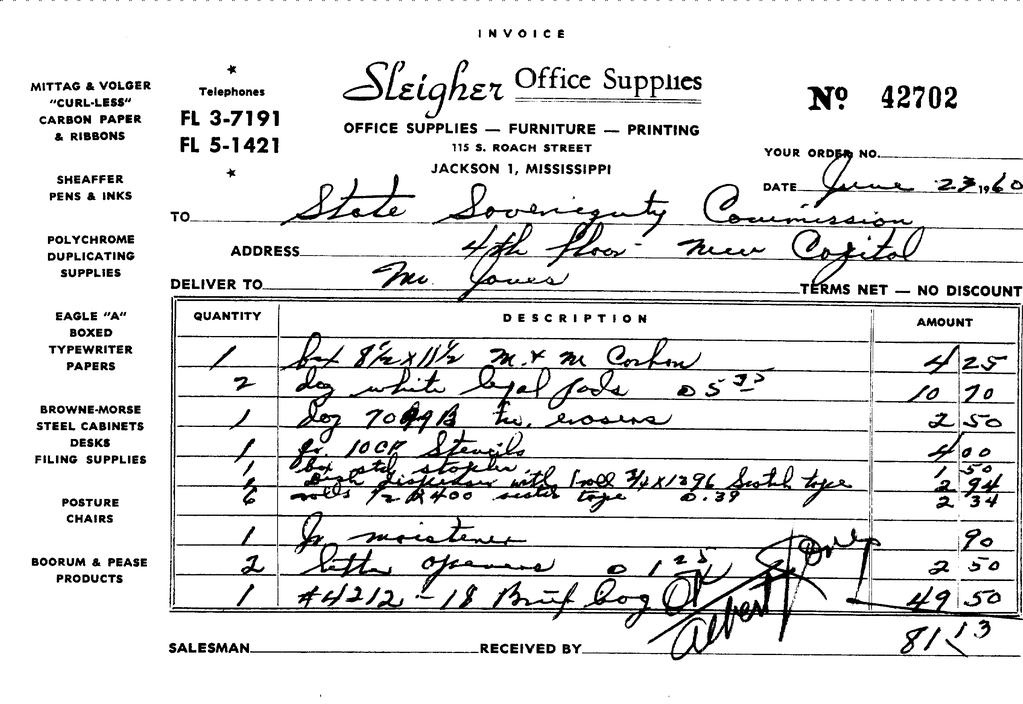 INVOICE
MITTAG & VOLGER
"CURL-LESS"
CARBON PAPER
& RIBBONS
SHEAFFER
PENS & INKS
POLYCHROME
DUPLICATING
SUPPLIES
EAGLE "A"
BOXED
TYPEWRITER
PAPERS
BROWNE-MORSE
STEEL CABINETS
DESKS
FILING SUPPLIES
POSTURE
CHAIRS
BOORUM & PEASE
PRODUCTS
Telephones
FL 3-7191
FL 5-1421
Sleigher Office Supplies
OFFICE SUPPLIES — FURNITURE — PRINTING
115 S. ROACH STREET
JACKSON 1, MISSISSIPPI
Nº 42702
YOUR ORDER NO.
DATE June 23 1960
TO State Sovereignty Commission
ADDRESS 4th floor - New Capitol
DELIVER TO Mr. Jones TERMS NET — NO DISCOUNT
QUANTITY DESCRIPTION AMOUNT
1 box 8½ x 11½ M. & M Carbon 4 25
2 doz white legal pads @ 5 35 10 70
1 doz erasers 2 50
1 qr. 10CP Stencils 4 00
1 box std staples 1 50
1 dispenser with 1 roll 3/4 x 1296 Scotch tape 2 94
6 rolls 1/2 R400 tape @ .39 2 34
1 Jr. moistener 90
2 letter openers @ 1 25 2 50
1 #4212-18 Brief bag 49 50
OK Albert Jones
81 13
SALESMAN RECEIVED BY